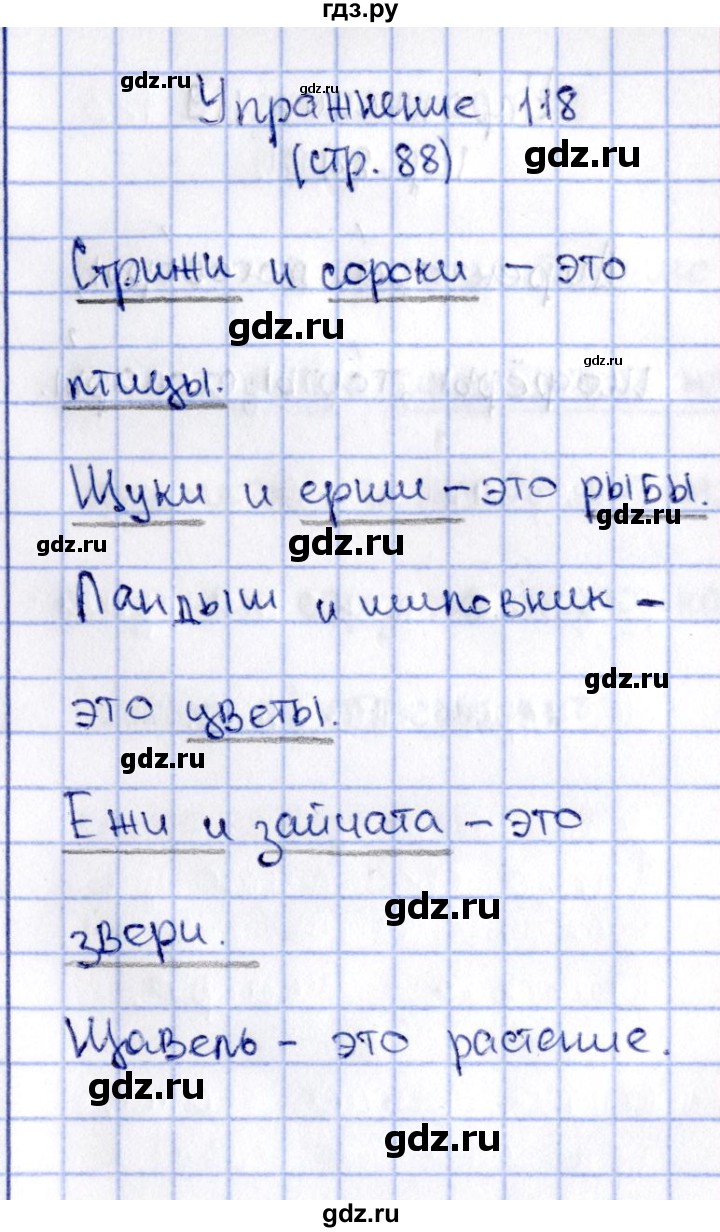 гдз.ру
gdz.ru
gdz.ru
Упражнение 118
gdz.ru
(стр. 88)
Стрижи и сороки – это
gdz.ru
gdz.ru
птицы.
Щуки и ерши – это рыбы.
gdz.ru
gdz.ru
gdz.ru
Ландыш и шиповник –
gdz.ru
это цветы.
gdz.ru
Ежи и зайчата – это
gdz.ru
звери.
Щавель – это растение.
gdz.ru
gdz.ru
gdz.ru